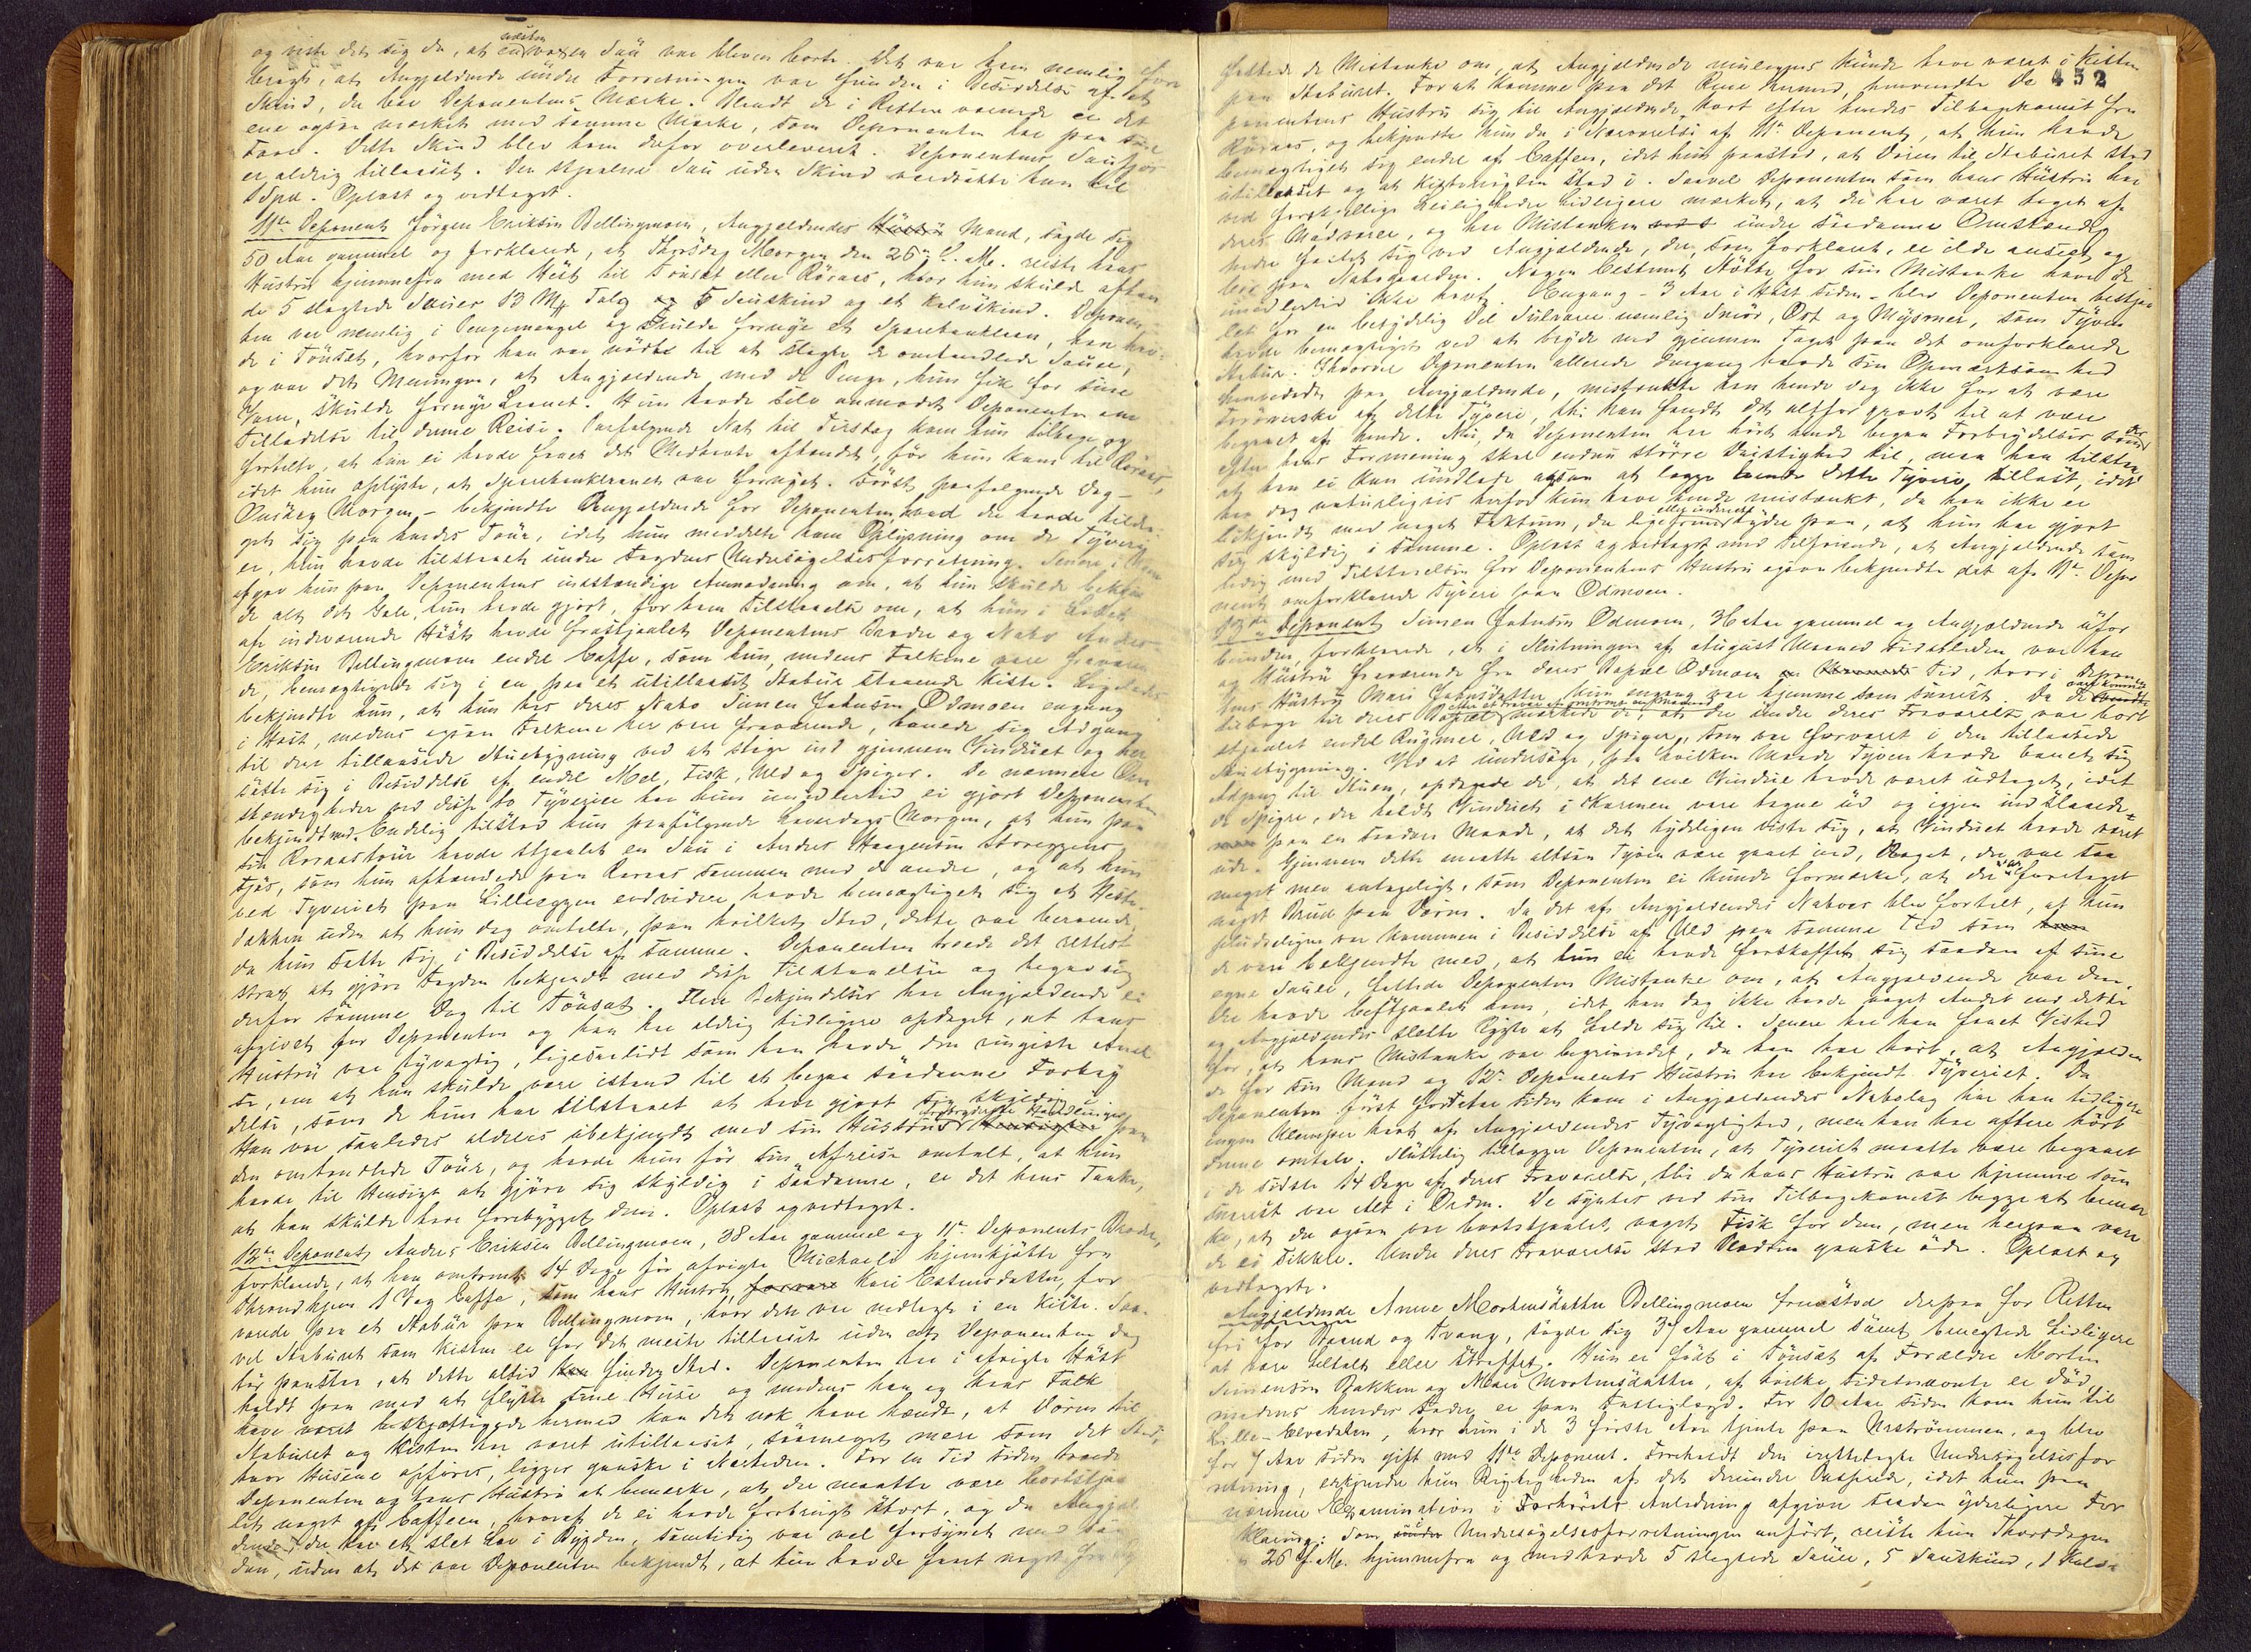 og viste det sig da, at en næsten voxen Sau var bleven borte. Det var ham nemlig fore
bragt, at Angjældende under Forretningen var funden i Besiddelse af et
Skind, der bar Deponentens Mærke. Blandt de i Retten værende er det
ene ogsaa mærket med samme Mærke, som Deponenten har paa sine
Faar. Dette Skind blev ham derfor overleveret. Deponentens Saufjøs
er aldrig tillaaset. Den stjaalne Sau uden Skind værdsatte han til
1 Spd. Oplæst og vedtaget.
11te Deponent Jørgen Eriksen Bellingmoen, Angjældendes Mand, sagde sig
50 Aar gammel og forklarede, at Thorsdag Morgen den 26de f. M. reiste hans
Hustru hjemmefra med Hest til Tønsæt eller Røraas, hvor hun skulde afhæn
de 5 slagtede Sauer 13 Mk Talg og 5 Sauskind og et Kalvskind. Deponen
ten var nemlig i Pengemangel og skulde fornye et Sparebanklaan, han hav
de i Tønsæt, hvorfor han var nødt til at slagte de omhandlede Sauer,
og var det Meningen, at Angjældende med de Penge, hun fik for sine
Varer, skulde fornye Laanet. Hun havde selv anmodet Deponenten om
Tilladelse til denne Reise. Paafølgende Nat til Tirsdag kom hun tilbage og
fortalte, at hun ei havde faaet det Medhavte afhændet, før hun kom til Røraas,
idet hun oplyste, at Sparebanklaanet var fornyet. Først paafølgende Dag -
Onsdag Morgen - bekjendte Angjældende for Deponenten, hvad der havde tildra
get sig paa hendes Tour, idet hun meddelte ham Oplysning om de Tyveri
er, hun havde tilstaaet under Fogdens Undersøgelsesforretning. Senere
afgav hun paa Deponentens indstændige Anmodning om, at hun skulde bekjen
de alt det Gale, hun havde gjort, for ham Tilstaaelse om, at hun i
af indeværende Høst havde frastjaalet Deponentens Broder og Nabo Anders
Eriksen Bellingmoen endel Caffe, som hun, medens Folkene vare fraværen
de, bemægtigede sig i en paa et utillaaset Stabur staaende Kiste. Ligeledes
bekjendte hun, at hun hos deres Nabo Simen Johnsen Ødmoen engang
i Høst, medens ogsaa Folkene her vare fraværende, banede sig Adgang
til den tillaasede Stuebygning ved at stige ind gjennem Vinduet og her
satte sig i Besiddelse af endel Mel, Fisk, Uld og Spiger. De nærmere Om
stændigheder ved disse to Tyverier har hun imidlertid ei gjort Deponenten
bekjendt med. Endelig tilstod hun paafølgende Løverdags Morgen, at hun paa
sin Røraastour havde stjaalet en Sau i Anders Haagensen Storeggens
Fjøs, som hun afhændede paa Røraas sammen med de andre, og at hun
ved Tyveriet paa Lilleeggen endvidere havde bemægtiget sig et Heste
dækken uden at hun dog omtalte, paa hvilket Sted, dette var beroende,
da hun satte sig i Besiddelse af samme. Deponenten troede det rettest
strax at gjøre Fogden bekjendt med disse Tilstaaelser og begav sig
derfor samme Dag til Tønsæt. Flere Bekjendelser har Angjældende ei
afgivet for Deponenten og han har aldrig tidligere opdaget, at hans
Hustru var tyvagtig, ligesaalidt som han havde den ringeste Anel
se, om at hun skulde være istand til at begaa saadanne Forbry
delser, som de hun har tilstaaet at have gjort sig skyldig i.
Han var saaledes aldeles ubekjendt med sin Hustrus forbryderske Handlinger paa
den omhandlede Tour, og havde hun før sin Afreise omtalt, at hun
havde til Hensigt at gjøre sig skyldig i saadanne, er det hans Tanke,
at han skulde have forebygget dem. Oplæst og vedtaget.
12te Deponent Anders Eriksen Bellingmoen, 38 Aar gammel og 11te Deponents Broder,
forklarede, at han omtrent 14 Dage før afvigte Michaeli hjemkjøbte fra
Throndhjem 1 Vog Caffe, som hans Hustru, Kari Estensdatter, for
varede paa et Stabur paa Bellingmoen, hvor den var nedlagt i en Kiste. Saa
vel Staburet som Kisten er for det meste tillaaset uden at Deponenten dog
tør paastaa, at dette altid finder Sted. Deponenten har i afvigte Høst
holdt paa med at flytte sine Huse og medens han og hans Folk
have været beskjæftigede hermed kan det nok have hændt, at Døren til
Staburet og Kisten har været utillaaset, saameget mere som det Sted,
hvor Husene opføres, ligger ganske i Nærheden. For en Tid siden troede
Deponenten og hans Hustru at bemærke, at der maatte være bortstjaa
let noget af Caffeen, hvoraf de ei havde forbrugt stort, og da Angjæl
dende der har et slet Lov i Bygden, samtidig var vel forsynet med saa
dan, uden at det var Deponenten bekjendt, at hun havde faaet noget fra By
452
fattede de Mistanke om, at Angjældende muligens kunde have været i Kisten
paa Staburet. For at komme paa det Rene hermed, henvendte De
ponentens Hustru sig til Angjældende, kort efter hendes Tilbagekomst fra
Røraas, og bekjendte hun da i Nærværelse af 11te Deponent, at hun havde
bemægtiget sig endel af Caffeen, idet hun paastod, at Døren til Staburet stod
utillaaset og at Kistenøglen stod i. Saavel Deponenten som hans Hustru har
ved forskjellige Leiligheder tidligere mærket, at der har været taget af
deres Madvarer, og har Mistanken under saadanne Omstændig
heder fæstet sig ved Angjældende, der, som forklaret, er ilde anseet og
bor paa Nabogaarden. Nogen bestemt Støtte for sin Mistanke have de
imidlertid ikke havt. Engang - 3 Aar i Høst siden - blev Deponenten bestjaa
let for en betydelig Del Sulvarer nemlig Smør, Ost og Mysmer, som Tyven
havde bemægtiget ved at bryde ned gjennem Taget paa det omforklarede
Stabur. Skjøndt Deponenten allerede dengang havde sin Opmærksomhed
henledet paa Angjældende, mistænkte han hende dog ikke for at være
Forøverske af dette Tyveri, thi han fandt det altfor grovt til at være
begaaet af hende. Nu, da Deponenten har hørt hende begaa Forbrydelser der
efter hans Formening skal endnu større Dristighed til, maa han tilstaa,
at han ei kan undlade ogsaa at lægge hende dette Tyveri tillast, idet
han dog naturligvis herfor kun have hende mistænkt, da han ikke er
bekjendt med noget Faktum, der ligefrem eller indirecte tyder paa, at hun har gjort
sig skyldig i samme. Oplæst og vedtaget med Tilføiende, at Angjældende sam
tidig med Tilstaaelsen for Deponentens Hustru ogsaa bekjendte det af 11te Depo
nent omforklarede Tyveri paa Ødmoen.
13de Deponent Simen Johnsen Ødmoen, Aar gammel og Angjældende ufor
bunden, forklarede, at i Slutningen af August Maaned sidstleden var han
og Hustru fraværende fra deres Bopæl Ødmoen en Tid, hvori Deponen
tens Hustru Mari Johnsdatter kun engang var hjemme som snarest. Da de vare komne
tilbage til deres Bopæl efter et Fravær af omtrent en Maaned mærkede de, at der under deres Fraværelse var bort
stjaalet endel Rugmel, Uld og Spiger, som var forvaret i den tillaasede
Stuebygning. Ved at undersøge, paa hvilken Maade Tyven havde banet sig
Adgang til Stuen, opdagede de, at det ene Vindue havde været udtaget, idet
de Spigre, der holdt Vinduet i Karmen vare tagne ud og igjen indslaaede
paa en saadan Maade, at det tydeligen viste sig, at Vinduet havde været
ude. Gjennem dette maatte altsaa Tyven være gaaet ind,
meget mere antageligt, som Deponenten ei kunde formærke, at der var foretaget
noget Brud paa Døren. Da det af Angjældendes Naboer blev fortalt, at hun
pludseligen var kommen i Besiddelse af Uld paa samme Tid som
de vare bekjendte med, at hun ei havde forskaffet sig saadan af sine
egne Sauer, fattede Deponenten Mistanke om, at Angjældende var den,
der havde bestjaalet ham, idet han dog ikke havde noget Andet end dette
og Angjældendes slette Rygte at holde sig til. Senere har han faaet Vished
for, at hans Mistanke var begrundet, da han har hørt, at Angjælden
de for sin Mand og 12te Deponents Hustru har bekjendt Tyveriet. Da
Deponenten først for Aar siden kom i Angjældendes Nabolag har han tidligere
ingen Ulemper havt af Angjældendes Tyvagtighed, men han har oftere hørt
denne omtale. Sluttelig tillægger Deponenten, at Tyveriet maatte være begaaet
i de sidste 14 Dage af deres Fraværelse, thi da hans Hustru var hjemme som
snarest var Alt i Orden. De syntes ved sin Tilbagekomst begge at bemær
ke, at der ogsaa var bortstjaalet noget Fisk for dem, men herpaa vare
de ei sikkre. Under deres Fraværelse stod Pladsen ganske øde. Oplæst og
vedtaget.
Angjældende Anne Mortensdatter Bellingmoen fremstod derpaa for Retten
fri for Baand og Tvang, sagde sig 37 Aar gammel samt benegtede tidligere
at være tiltalt eller straffet. Hun er født i Tønsæt af Forældre Morten
Simensen Bakken og Mari Mortensdatter, af hvilke sidstnævnte er død
medens hendes Fader er paa Fattiglægd. For 10 Aar siden kom hun til
Lille-Elvedalen, hvor hun i de 3 første Aar tjente paa Nestrømmen, og blev
for 7 Aar siden gift med 11te Deponent. Foreholdt den irettelagte Undersøgelsesfor
retning, erkjendte hun Rigtigheden af det derunder Passerede, idet hun paa
nærmere Examination i Forhørets Anledning afgiver saadan yderligere For
klaring: Som i Undersøgelsesforretningen anført, reiste hun Thorsdagen
26 f. M. hjemmefra og medhavde 5 slagtede Sauer, 5 Sauskind, 1 Kalv-